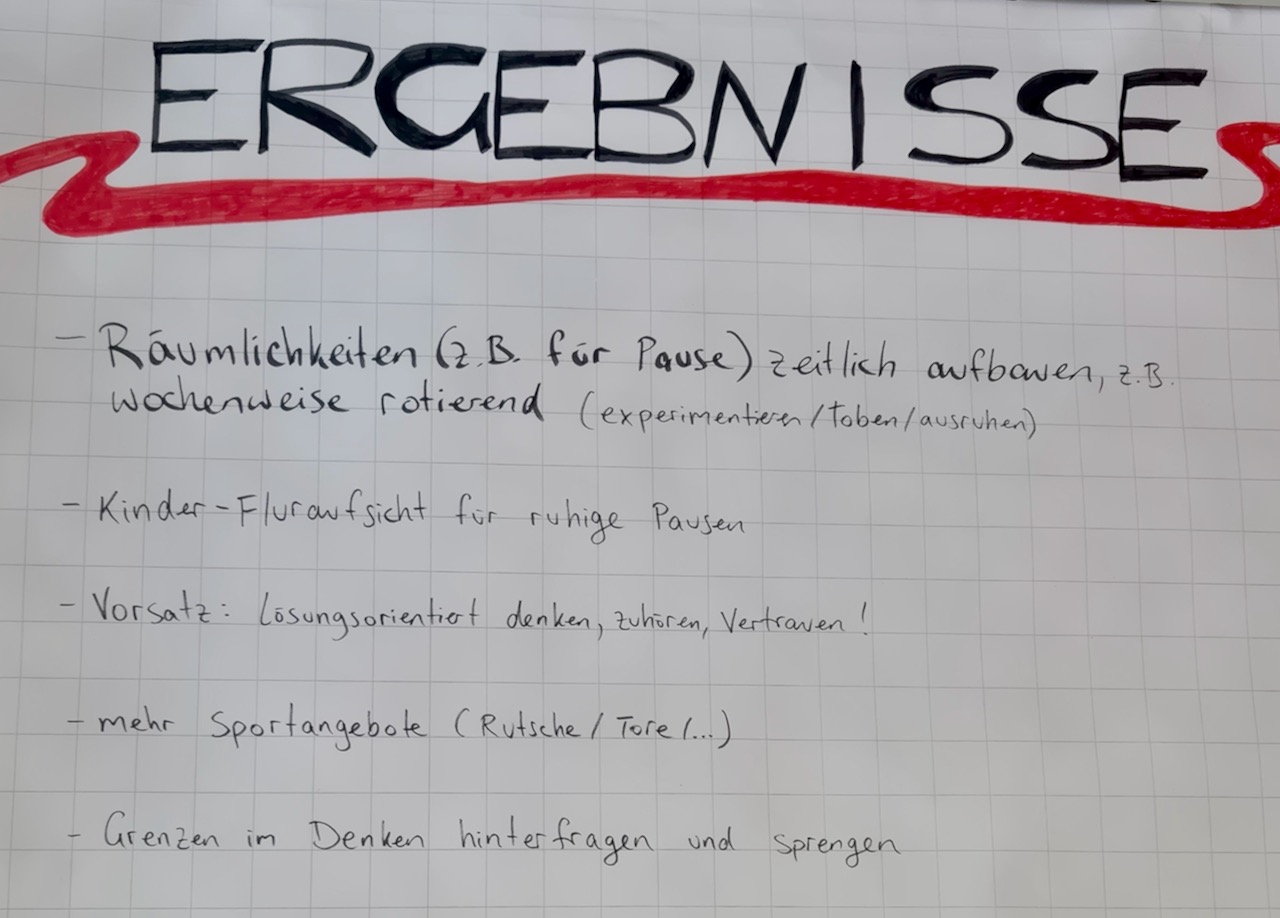 ERGEBNISSE
- Räumlichkeiten (z.B. für Pause) zeitlich aufbauen, z.B.
wochenweise rotierend (experimentieren/toben/ausruhen)
- Kinder-Fluraufsicht für ruhige Pausen
- Vorsatz: Lösungsorientiert denken, zuhören, Vertrauen!
- mehr Sportangebote (Rutsche/Tore/...)
- Grenzen im Denken hinterfragen und sprengen